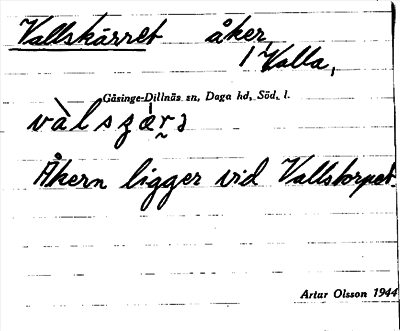 Vallskärret åker
/ Valla,
Gåsinge-Dillnäs sn, Daga hd, Söd. l.
Åkern ligger vid Vallstorpet.
Artur Olsson 1944